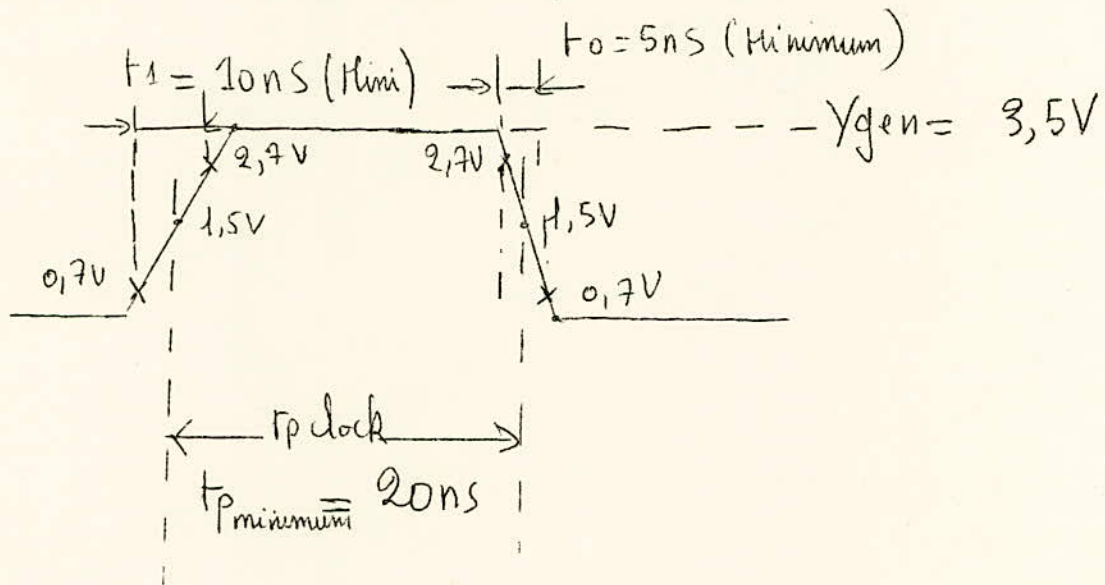 t1 = 10nS (Mini)
t0 = 5nS (Minimum)
Vgen = 3,5V
2,7V
2,7V
1,5V
1,5V
0,7V
0,7V
tp clock
tp minimum = 20ns